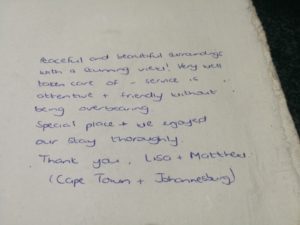 Peaceful and beautiful surroundings
with a stunning view! Very well
taken care of - service is
attentive + friendly without
being overbearing
Special place + we enjoyed
our stay thoroughly
Thank you, Lisa + Matthew
(Cape Town + Johannesburg)